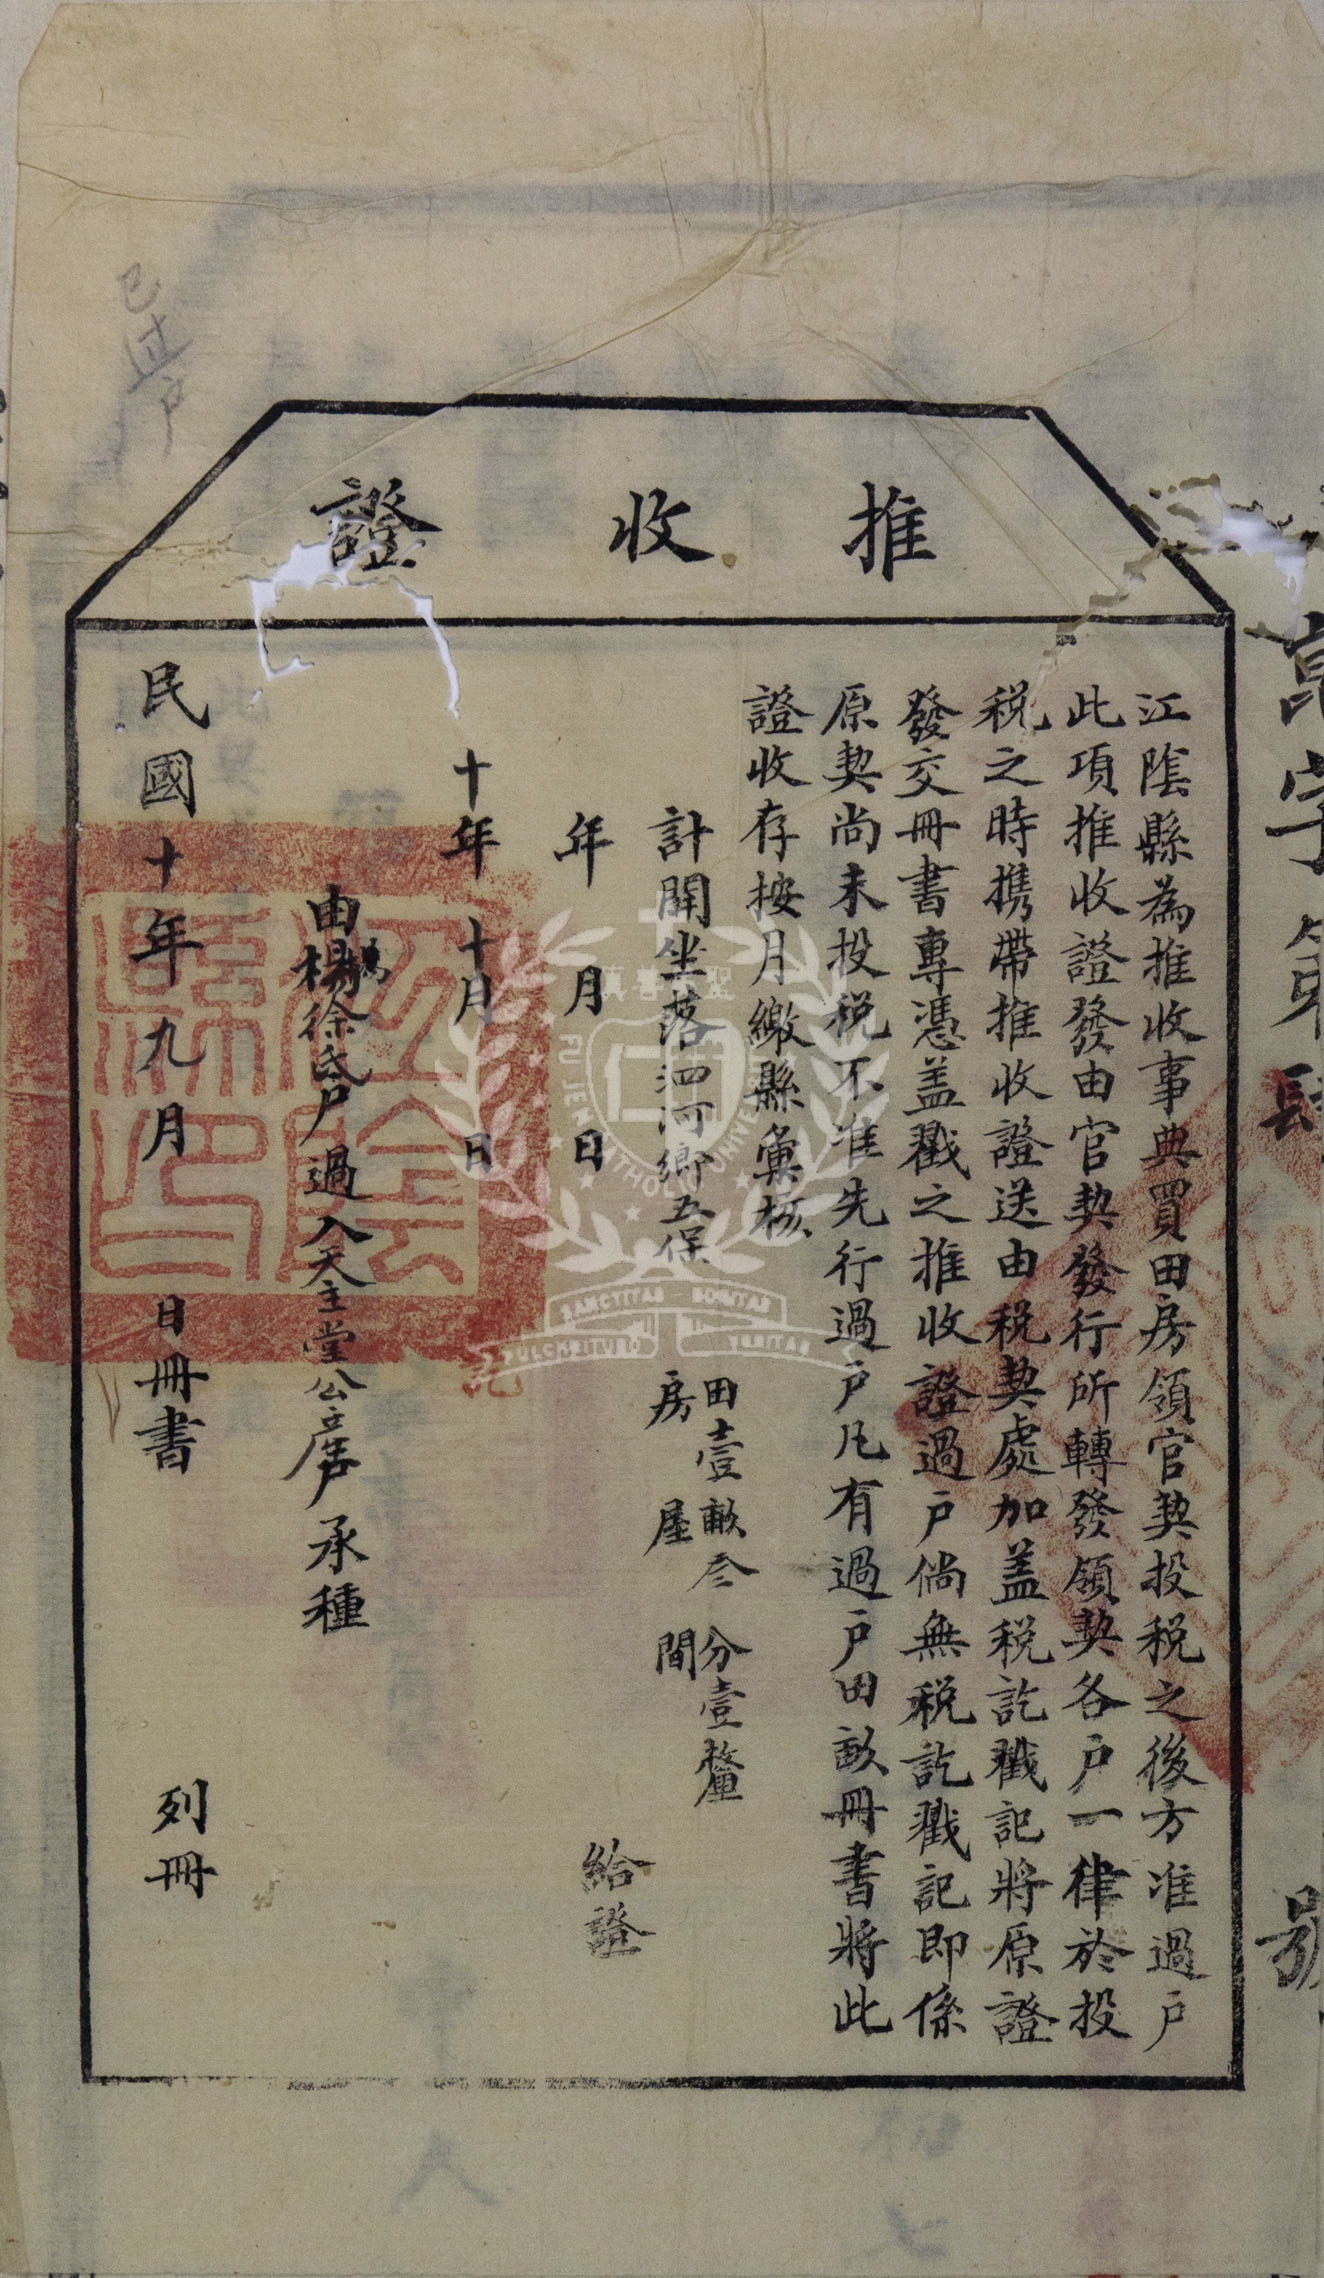 推收證
江陰縣為推收事典買田房領官契投税之後方准過戶
此項推收證發由官契發行所轉發領契各戶一律於投
税之時携帶推收證送由税契處加盖税訖戳記將原證
發交冊書專憑盖戳之推收證過戶倘無税訖戳記即係
原契尚未投税不准先行過戶凡有過戶田畝冊書將此
證收存按月繳縣彙核
計開坐落泗河鄉五保
田壹畝叁分壹釐
房屋間
年月日給證
十年十月日
由楊徐氏戶過入天主堂公產戶承種
民國十年九月日冊書列冊
已过户
字第
號
江陰縣印
聖美善真
FU JEN CATHOLIC UNIVERSITY
SANCTITAS BONITAS
PULCHRITUDO VERITAS